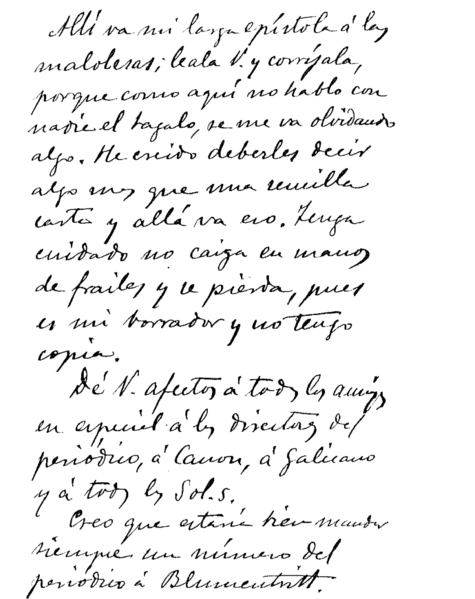 Allí va mi larga epístola á las
malolesas; leala V. y corríjala,
porque como aquí no hablo con
nadie el tagalo, se me va olvidando
algo. He creido deberles decir
algo mas que una sencilla
carta y allá va eso. Tenga
cuidado no caiga en manos
de frailes y se pierda, pues
es mi borrador y no tengo
copia.
Dé V. afectos á todos los amigos
en especial á los directores del
periódico, á Canon, á Galicano
y á todos los Sol.s.
Creo que estaria bien mandar
siempre un número del
periódico á Blumentritt.